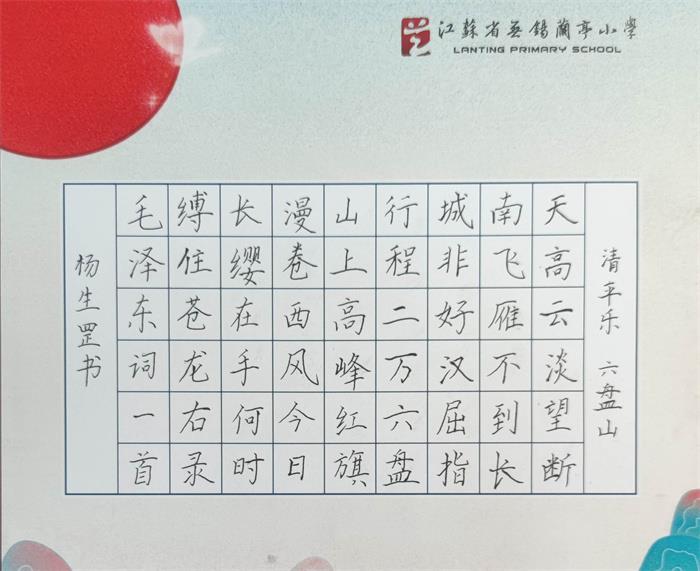 江蘇省无锡蘭亭小學
LANTING PRIMARY SCHOOL
清平乐 六盘山
天高云淡望断
南飞雁不到长
城非好汉屈指
行程二万六盘
山上高峰红旗
漫卷西风今日
长缨在手何时
缚住苍龙右录
毛泽东词一首
杨生罡书